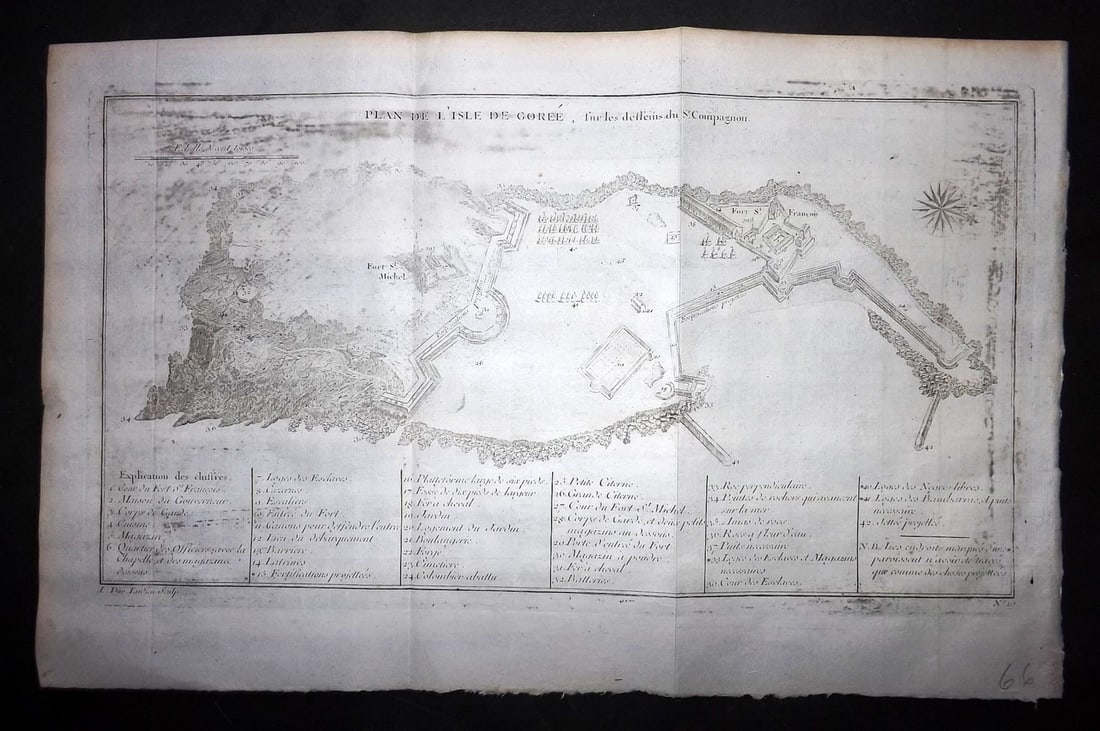 PLAN DE L'ISLE DE GORÉE, sur les desseins du Sr. Compagnon.
Fort St.
Michel
Fort St. François
Explication des chiffres.
1. Cour du Fort St. François.
2. Maison du Gouverneur.
3. Corps de Garde.
4. Cuisine.
5. Magazin.
6. Quartier des Officiers avec la
Chapelle et des magazins
dessous.
7. Loges des Esclaves.
8. Cazernes.
9. Escaliers
10. Entrée du Fort
11. Canons pour défendre l'entrée
12. Lieu du débarquement
13. Barriere.
14. Latrines
15. Fortifications projettées.
16. Plateforme large de six pieds.
17. Fossé de six pieds de largeur
18. Fer a cheval.
19. Jardin.
20. Logement du Jardin.
21. Boulangerie.
22. Forge.
23. Cimetiere
24. Colombier abattu.
25. Petite Citerne.
26. Grande Citerne.
27. Cour du Fort St. Michel.
28. Corps de Garde et deux petits
magazins au dessous.
29. Porte d'entrée du Fort.
30. Magazin à poudre.
31. Fer a cheval.
32. Batteries.
33. Roc perpendiculaire.
34. Pointes de rochers qui avancent
sur la mer
35. Amas de rocs.
36. Rocs a fleur d'eau.
37. Puits necessaire
38. Loges des Esclaves et Magazins
necessaires
39. Cour des Esclaves.
40. Loges des Negres libres.
41. Loges des Bambarras, et puits
necessaire.
42. Jettée projettée.
N.B. Les endroits marqués d'une
paroissent n'avoir été tracés
que comme des choses projettées
Sculp.
66